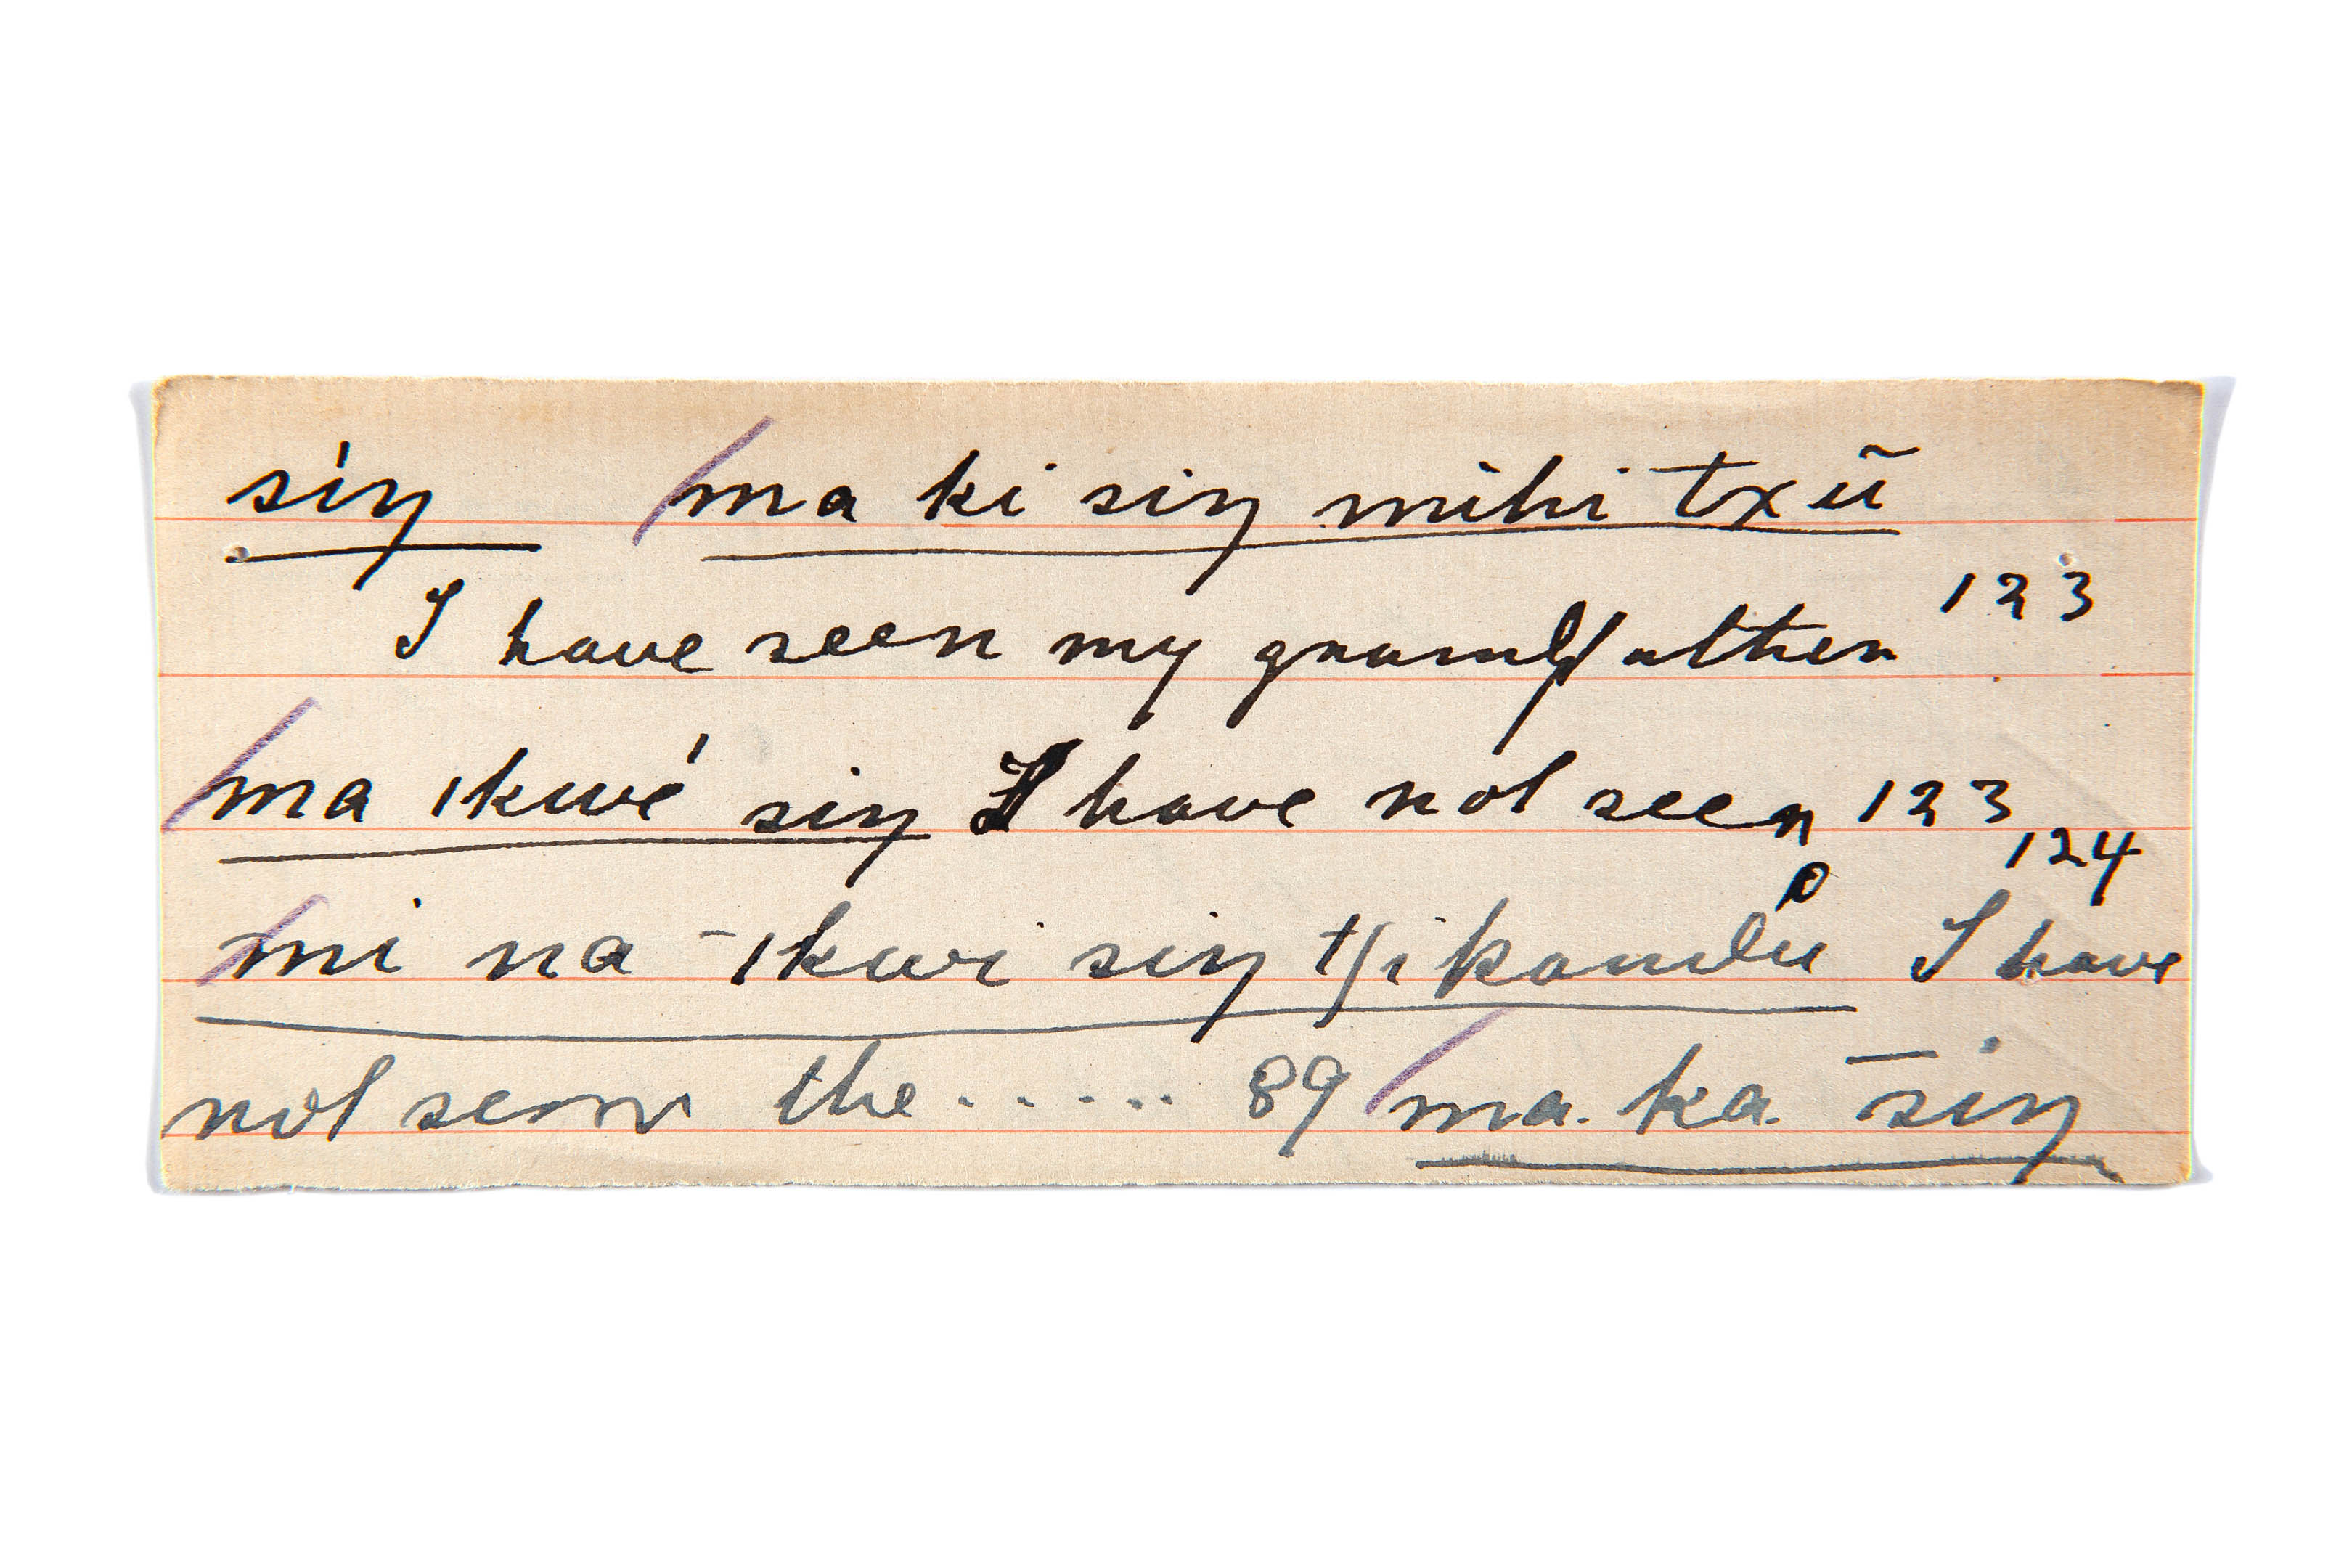 síŋ ma ki siŋ mihi txū
I have seen my grandfather 123
ma ıkwé siŋ I have not seen 123
124
mi na -ıkwi siŋ tʃikandu I have
not seen the ...... 89 ma. ka. siŋ